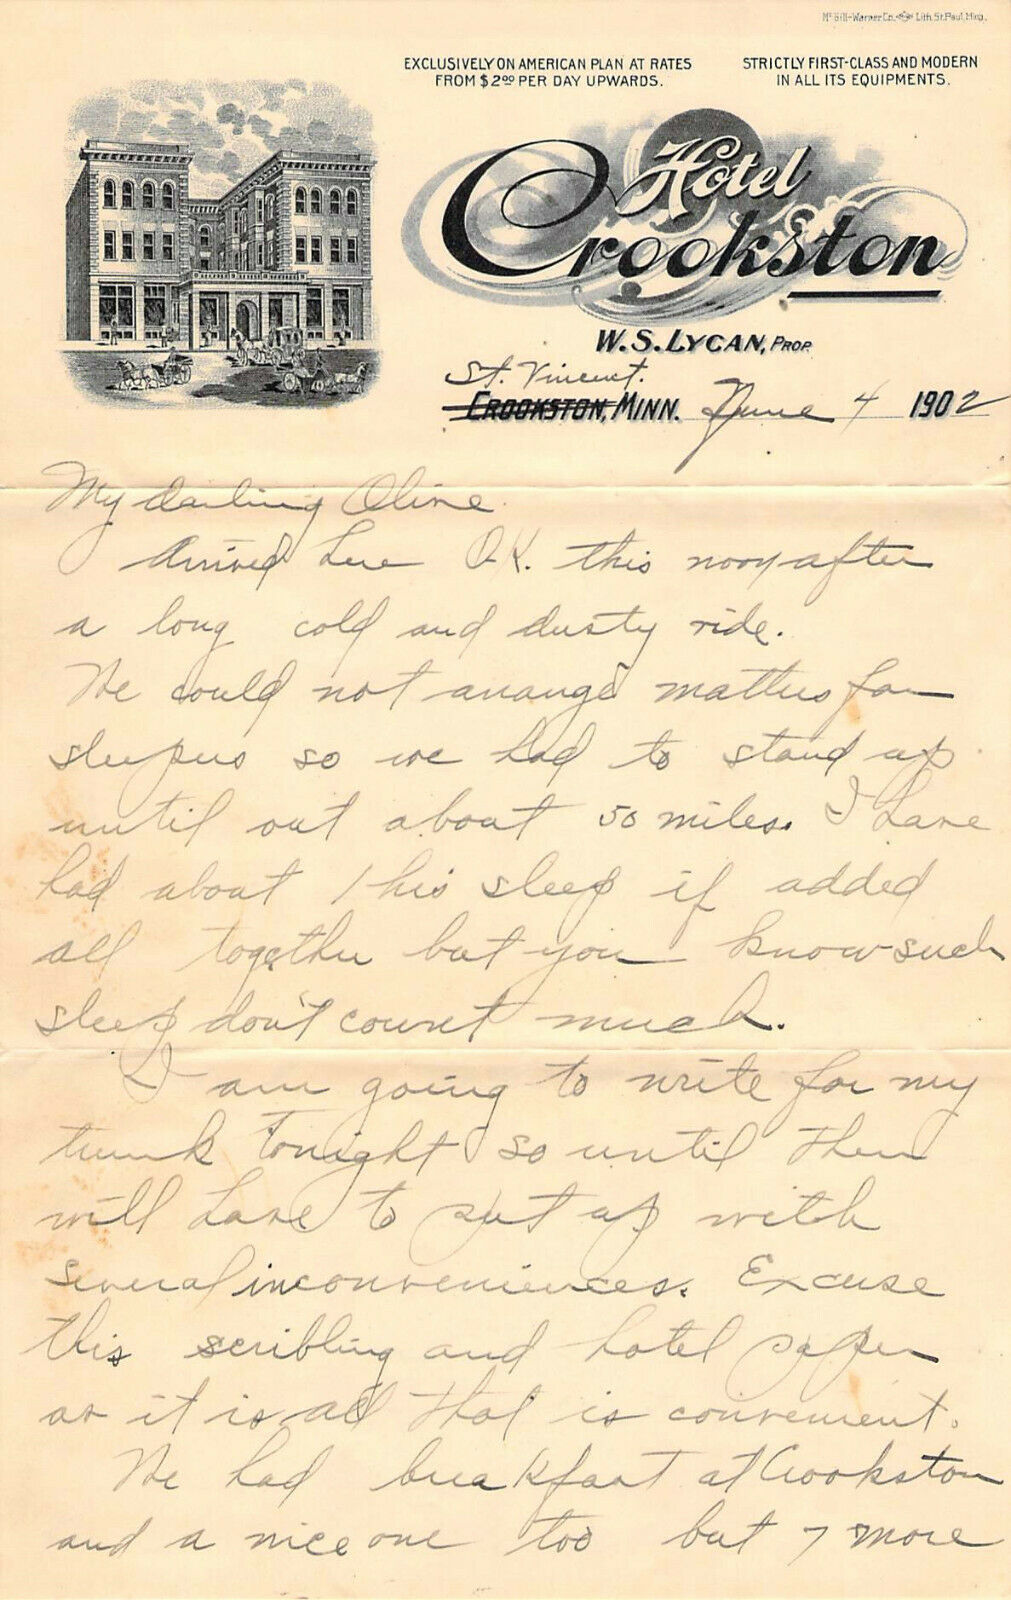 McGill-Warner Co. Lith. St. Paul, Minn.
EXCLUSIVELY ON AMERICAN PLAN AT RATES
FROM $2.00 PER DAY UPWARDS.
STRICTLY FIRST-CLASS AND MODERN
IN ALL ITS EQUIPMENTS.
Hotel
Crookston
W. S. LYCAN, PROP.
St. Vincent.
CROOKSTON, MINN. June 4 1902
My darling Olive
Arrived here O.K. this noon after
a long cold and dusty ride.
We could not arrange matters for
sleepers so we had to stand up
until out about 50 miles. I have
had about 1 hrs sleep if added
all together but you know such
sleep don't count much.
I am going to write for my
trunk tonight so until then
will have to put up with
several inconveniences. Excuse
this scribbling and hotel paper
as it is all that is convenient.
We had breakfast at Crookston
and a nice one too but 7 more